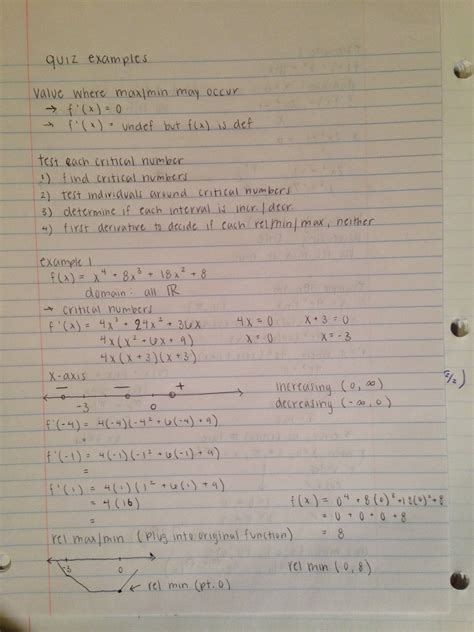 quiz examples
value where max/min may occur
→ f'(x) = 0
→ f'(x) = undef but f(x) is def
test each critical number
1) find critical numbers
2) test individuals around critical numbers
3) determine if each interval is incr./decr.
4) first derivative to decide if each rel/min/max, neither
example 1
f(x) = x⁴ + 8x³ + 18x² + 8
domain: all ℝ
→ critical numbers
f'(x) = 4x³ + 24x² + 36x 4x = 0 x + 3 = 0
4x(x² + 6x + 9) x = 0 x = -3
4x(x+3)(x+3)
x-axis
− − + increasing (0, ∞)
-3 0 decreasing (-∞, 0)
f'(-4) = 4(-4)(-4² + 6(-4) + 9)
f'(-1) = 4(-1)(-1² + 6(-1) + 9)
=
f'(1) = 4(1)(1² + 6(1) + 9)
= 4(16) f(x) = 0⁴ + 8(0)³ + 18(0)² + 8
= = 0 + 0 + 0 + 8
rel max/min (plug into original function) = 8
-3 0 rel min (0, 8)
rel min (pt. 0)